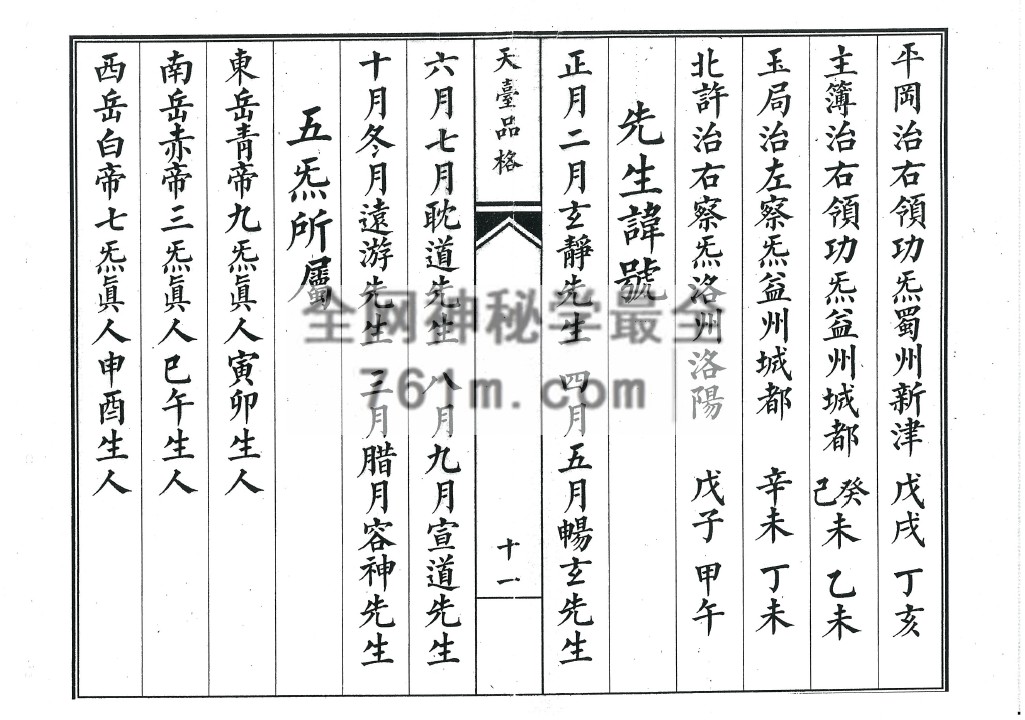 平岡治右領功炁蜀州新津 戊戌 丁亥
主簿治右領功炁益州城都 癸己未 乙未
玉局治左察炁益州城都 辛未 丁未
北許治右察炁洛州洛陽 戊子 甲午
先生諱號
正月二月玄靜先生 四月五月暢玄先生
天臺品格
十一
六月七月耽道先生 八月九月宣道先生
十月冬月遠游先生 三月腊月容神先生
五炁所屬
東岳青帝九炁眞人寅卯生人
南岳赤帝三炁眞人巳午生人
西岳白帝七炁眞人申酉生人
全网神秘学最全
761m.com